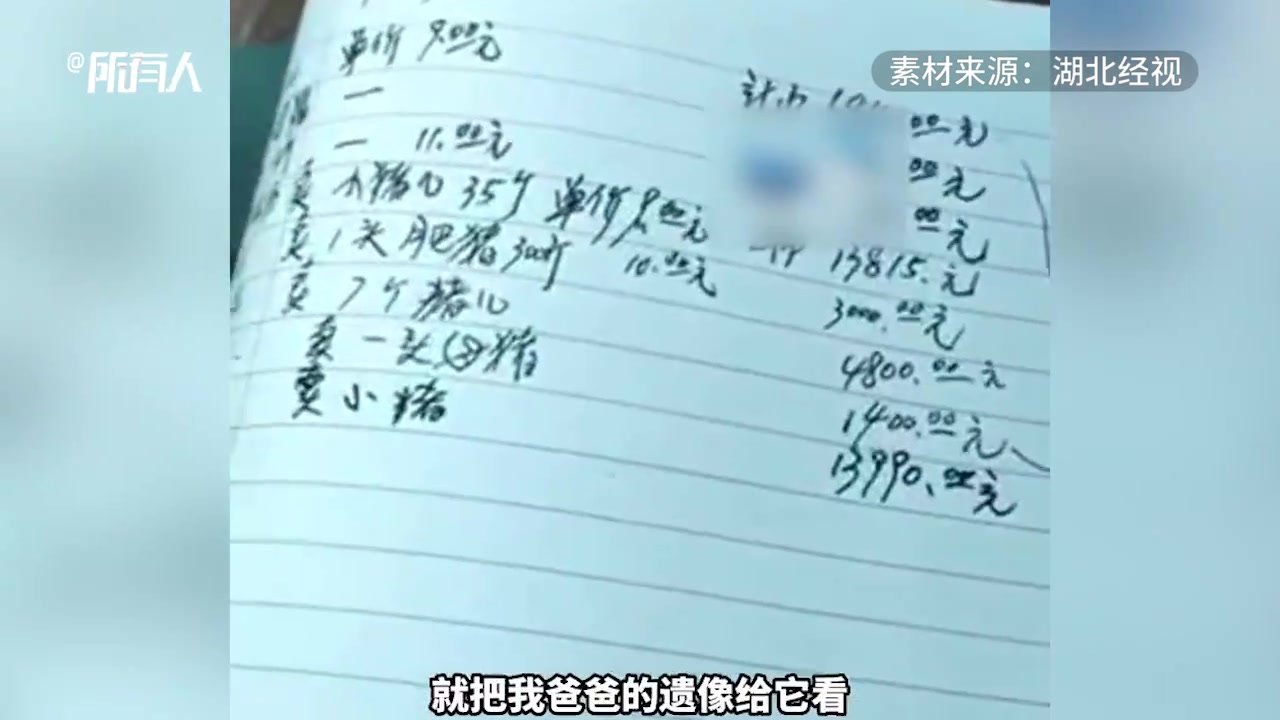 @所有人
素材来源：湖北经视
单价 9.00元
一 11.00元
卖 小猪儿 35个 单价9.00元
计 13815.元
卖 1头肥猪300斤 10.00元 3000.00元
卖 7个猪儿 4800.00元
卖 一头母猪 1400.00元
卖 小猪 13990.00元
就把我爸爸的遗像给它看